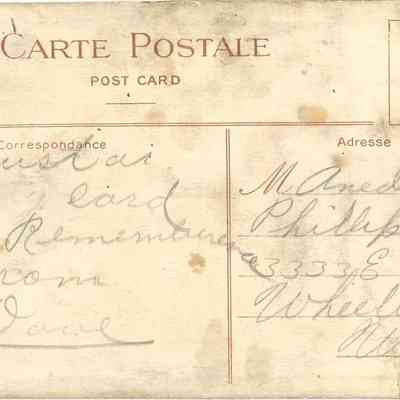 CARTE POSTALE
POST CARD
Correspondance
Adresse
Just a
card
Remembrance
from
Dave
M
Phillip
3333 E
Wheel